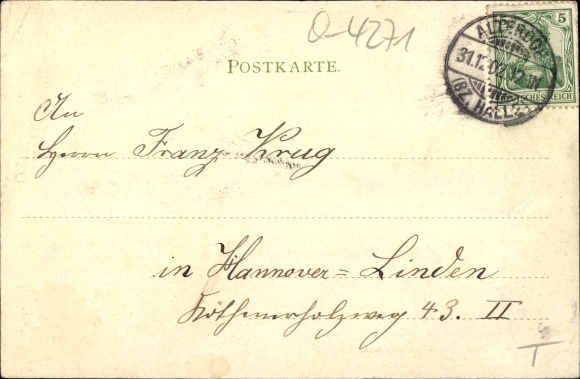 O-4271
POSTKARTE.
5
ALTENAU
31.12.02. 12-1N
(BZ. HALLE)
DEUTSCHES REICH
An
Herrn Franz Krug
in Hannover=Linden
Köthnerholzweg 43. II
T